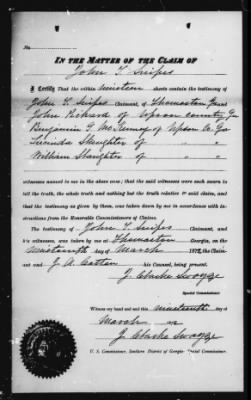 No.
IN THE MATTER OF THE CLAIM OF
John T. Snipes
I Certify That the within nineteen sheets contain the testimony of
John T. Snipes Claimant, of Thomaston Ga and
John Rickard of Upson County Ga
Benjamin T. McKenney of Upson Co. Ga
Lucinda Slaughter of " " "
William Slaughter of " " "
witnesses named to me in the above case; that the said witnesses were each sworn to
tell the truth, the whole truth and nothing but the truth relative to said claim, and
that the testimony as given by them, was taken down by me in accordance with in-
structions from the Honorable Commissioners of Claims.
The testimony of John T. Snipes Claimant, and
his witnesses, was taken by me at Thomaston Georgia, on the
nineteenth day of March 187, the Claim-
ant and J. A. Cotten his Counsel, being present.
J. Clarke Swayze
Special Commissioner.
Witness my hand and seal this nineteenth
March
J. Clarke Swayze
U. S. Commissioner, Southern District of Georgia Special Commissioner.